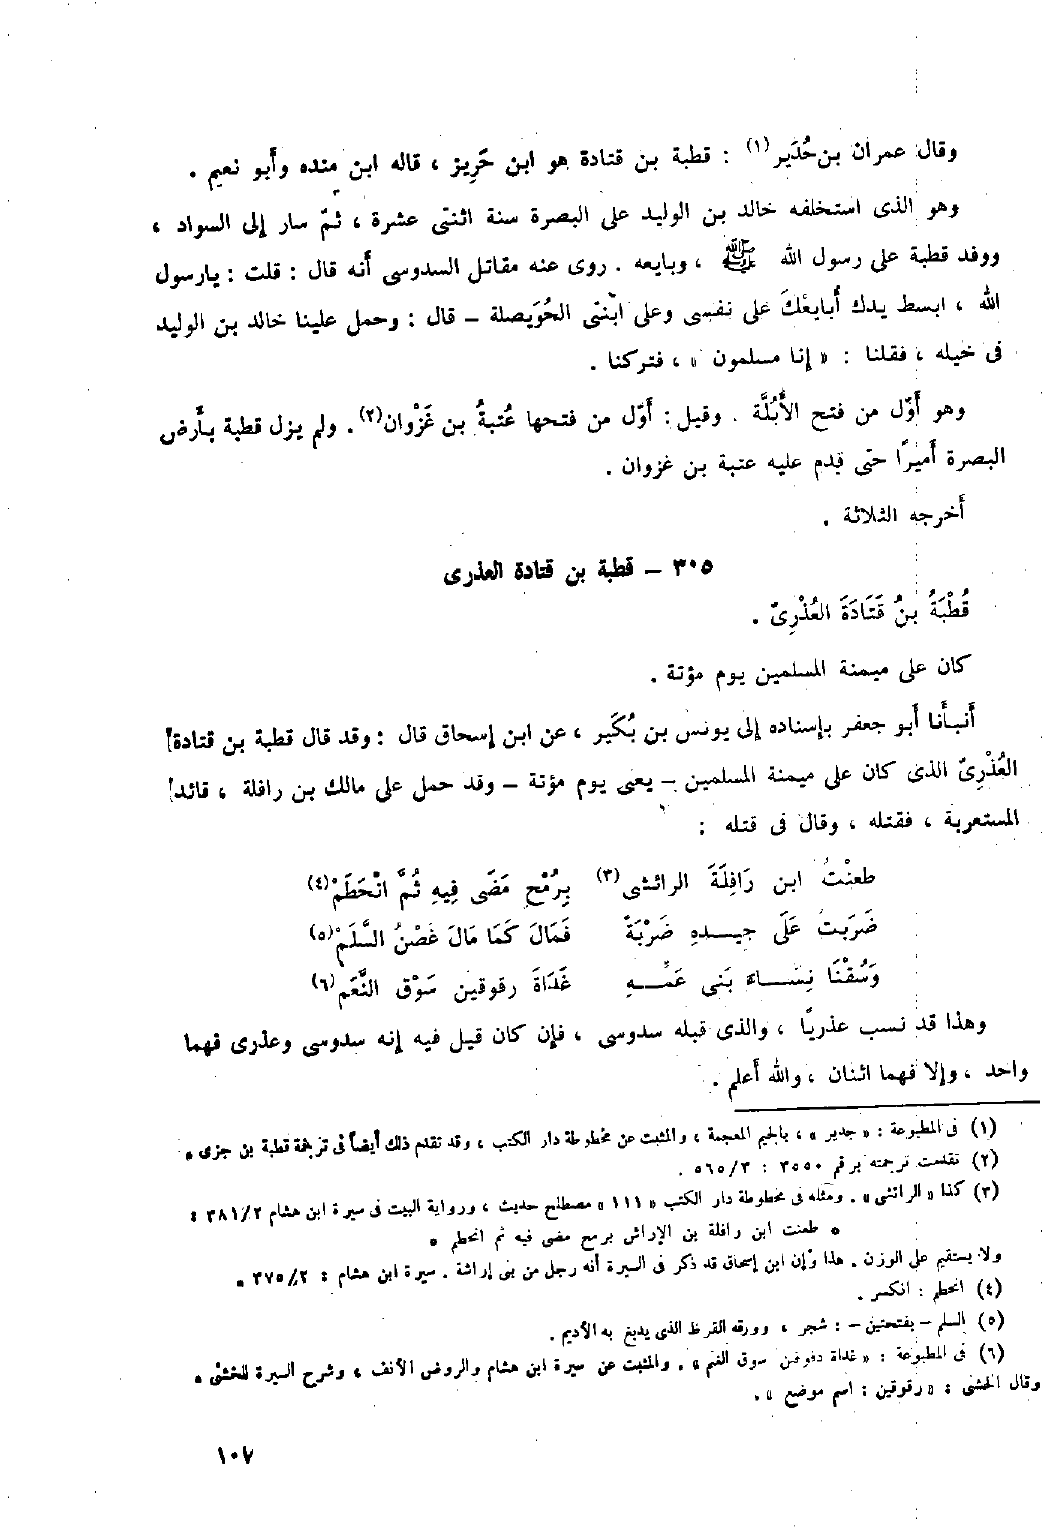 وقال عمران بن حُدَير(١) : قطبة بن قتادة هو ابن حَرِيز ، قاله ابن منده وأبو نعيم .
وهو الذى استخلفه خالد بن الوليد على البصرة سنة اثنتى عشرة ، ثمّ سار إلى السواد ،
ووفد قطبة على رسول الله ﷺ ، وبايعه . روى عنه مقاتل السدوسى أنه قال : قلت : يارسول
الله ، ابسط يدك أبايعْكَ على نفسى وعلى ابْنتى الحُوَيصلة – قال : وحمل علينا خالد بن الوليد
فى خيله ، فقلنا : « إنا مسلمون » ، فتركنا .
وهو أوّل من فتح الأُبُلَّة . وقيل : أوّل من فتحها عُتبةُ بن غَزْوان(٢) . ولم يزل قطبة بأرض
البصرة أميرًا حتى قدِم عليه عتبة بن غزوان .
أخرجه الثلاثة .
٣٠٥ – قطبة بن قتادة العذرى
قُطْبَةُ بنُ قَتَادَةَ العُذْرِىّ .
كان على ميمنة المسلمين يوم مؤتة .
أنبأنا أبو جعفر بإسناده إلى يونس بن بُكَير ، عن ابن إسحاق قال : وقد قال قطبة بن قتادة
العُذْرِىّ الذى كان على ميمنة المسلمين – يعنى يوم مؤتة – وقد حمل على مالك بن رافلة ، قائد
المستعربة ، فقتله ، وقال فى قتله :
طعنْتُ ابن رَافِلَةَ الرائشى(٣) بِرُمْحٍ مَضَى فِيهِ ثُمَّ انْحَطَمْ(٤)
ضَرَبتُ عَلَى جيــدهِ ضَرْبَةً فَمَالَ كَمَا مَالَ غَصْنُ السَّلَمْ(٥)
وَسُقْنَا نِسَـــاءَ بَنى عَمِّـــهِ غَدَاةَ رقوقين سَوْق النَّعَم(٦)
وهذا قد نسب عذريًّا ، والذى قبله سدوسى ، فإن كان قيل فيه إنه سدوسى وعذرى فهما
واحد ، وإلا فهما اثنان ، والله أعلم .
(١) فى المطبوعة : « جدير » ، بالجيم المعجمة ، والمثبت عن مخطوطة دار الكتب ، وقد تقدم ذلك أيضاً فى ترجمة قطبة بن جزى .
(٢) تقدمت ترجمته برقم ٣٥٥٠ : ٥٦٥/٣ .
(٣) كذا « الرائشى » . ومثله فى مخطوطة دار الكتب « ١١١ » مصطلح حديث ، ورواية البيت فى سيرة ابن هشام ٣٨١/٢ :
• طعنت ابن رافلة بن الإراش برمح مضى فيه ثم انحطم •
ولا يستقيم على الوزن . هذا وإن ابن إسحاق قد ذكر فى السيرة أنه رجل من بنى إراشة . سيرة ابن هشام : ٣٧٥/٢ .
(٤) انحطم : انكسر .
(٥) السلم – بفتحتين – : شجر ، وورقه القرظ الذى يدبغ به الأديم .
(٦) فى المطبوعة : « غداة دفوفين سوق الغنم » . والمثبت عن سيرة ابن هشام والروض الأنف ، وشرح السيرة للخشنى .
وقال الخشنى : « رقوقين : اسم موضع » .
١٠٧